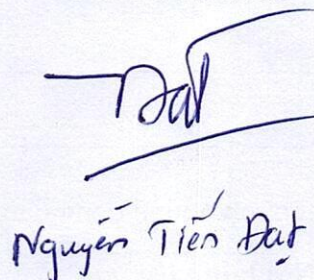 Đạt
Nguyễn Tiến Đạt